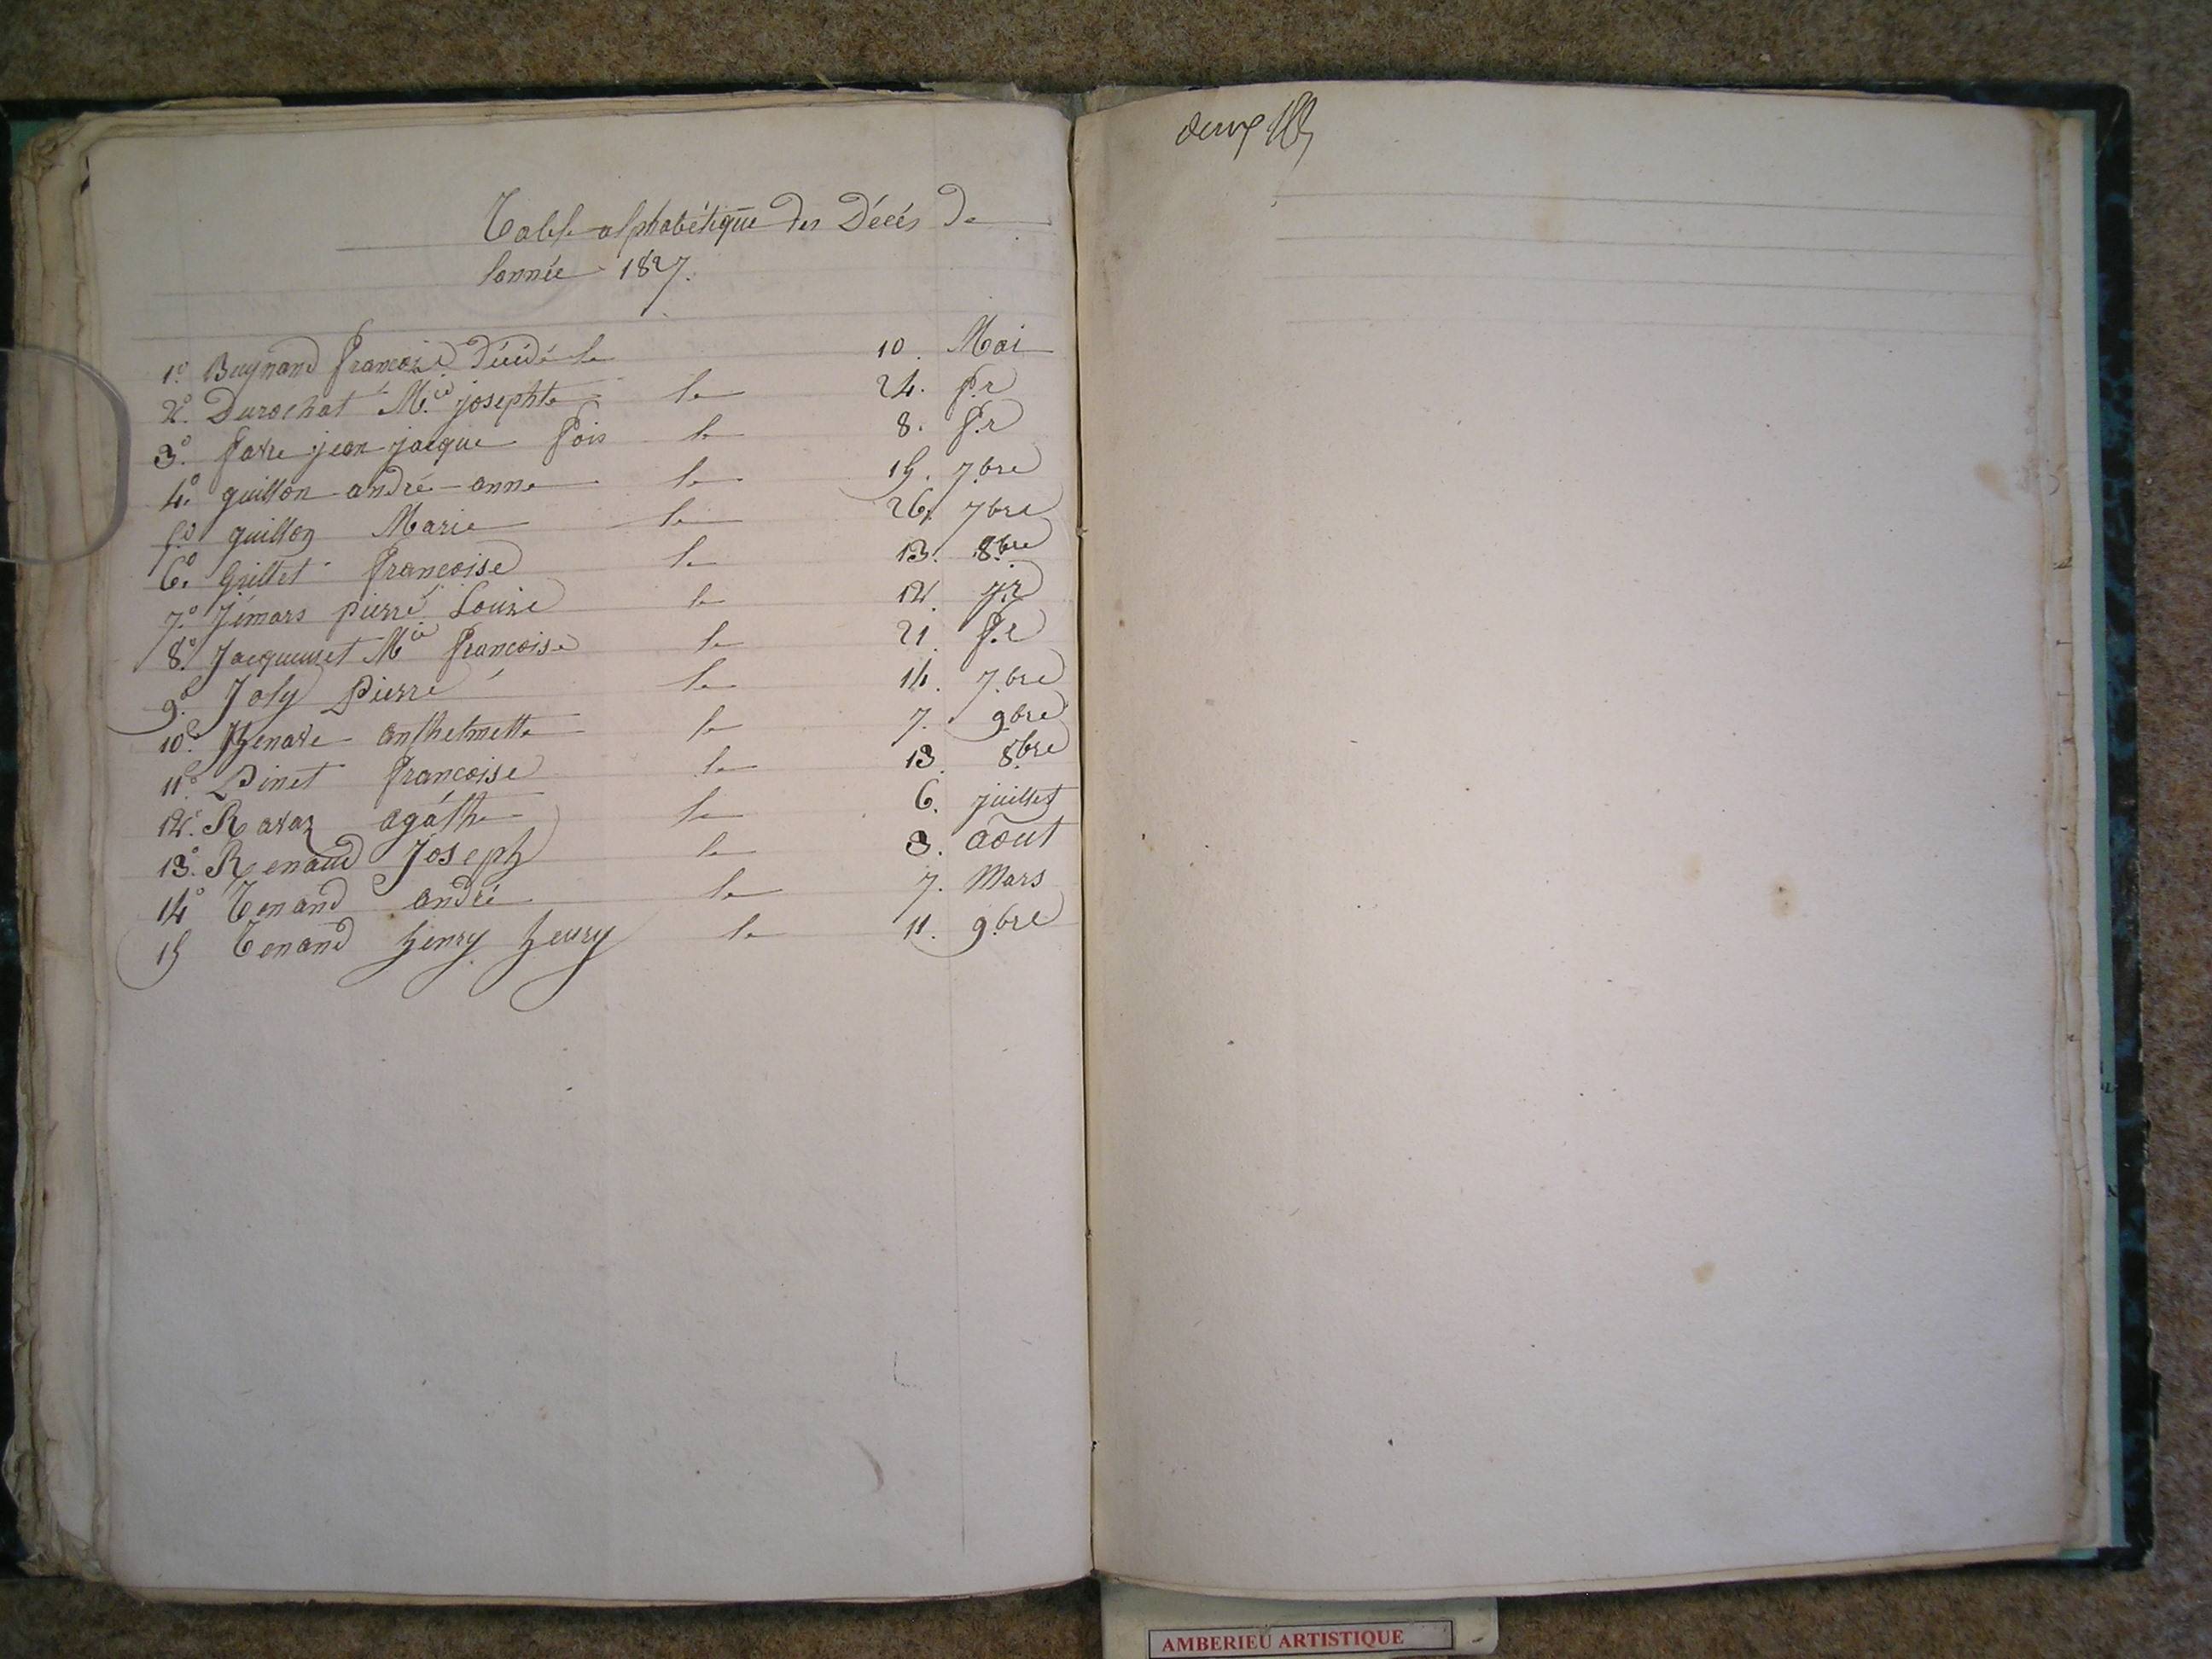 Table alphabétique des Décés de
lannée 1827.
1.° Buynand francoise décédé le 10. Mai
2.° Durochat M.ie josephte le 24. f.r
3.° favre jean jacque fois le 8. f.r
4.° guillon andré anne le 15. 7.bre
5.° guillon Marie le 26. 7bre
6.° Grillet francoise le 13. 8.bre
7.° Jémars pierre Louise le 12. j.r
8.° Jacquemet M.ie francoise le 21. f.r
9.° Joly Pierre le 14. 7.bre
10.° anthelmette le 7. 9bre
11.° Pinet francoise le 13. 8.bre
12.° Ravaz agathe le 6. juillet
13.° Renaud Joseph le 3. aout
14.° Tenand andré le 7. Mars
15 Tenand henry henry le 11. 9.bre
AMBERIEU ARTISTIQUE